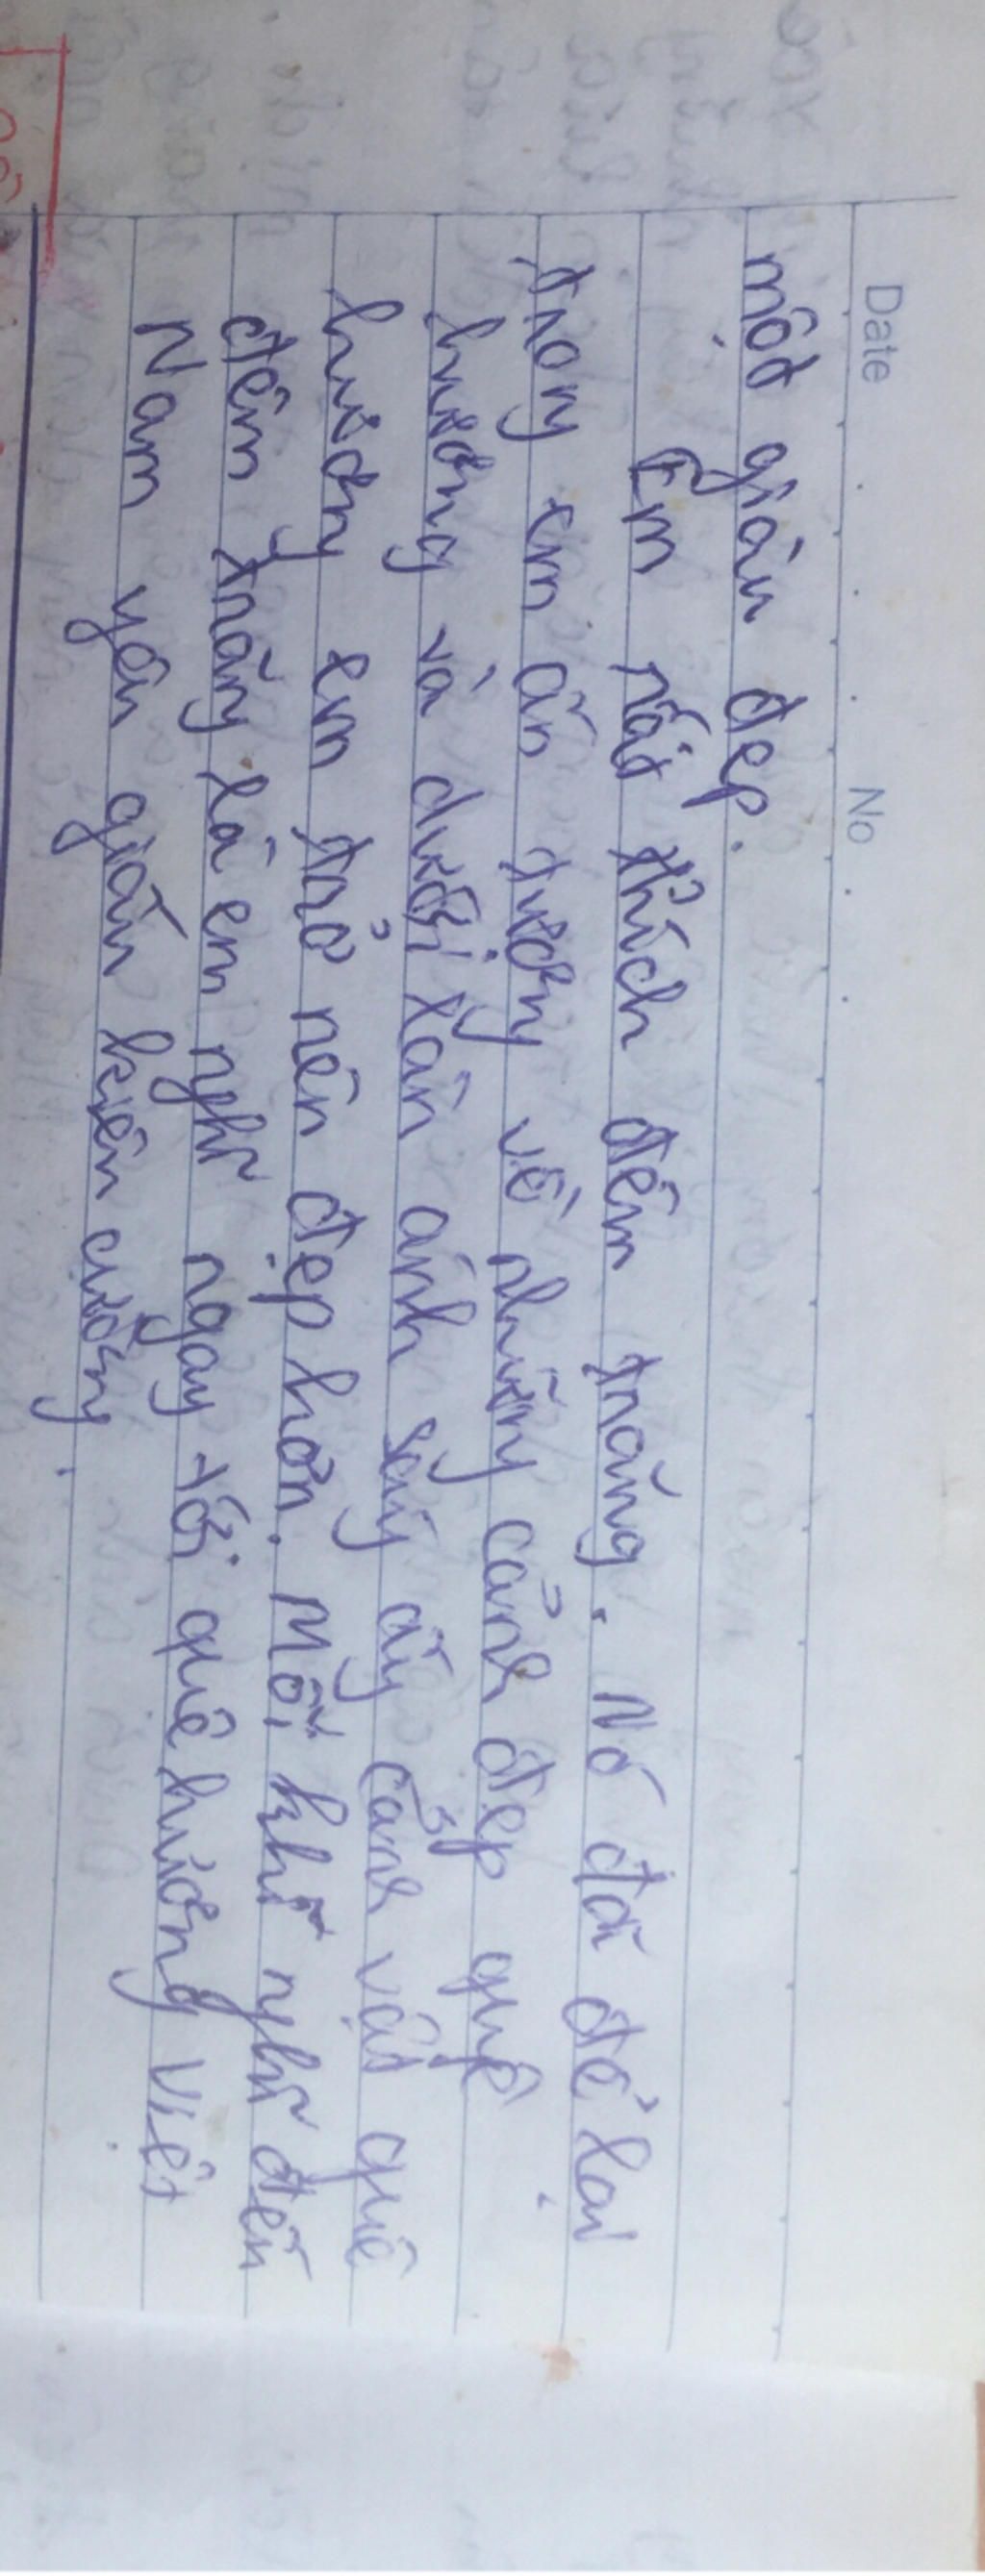 Date No
một giàu đẹp.
Em rất thích đêm trăng. Nó đã để lại
trong em ấn tượng về những cảnh đẹp quê
hương và dưới làn ánh sáng ấy cảnh vật quê
hương em trở nên đẹp hơn. Mỗi khi nghĩ đến
đêm trăng là em nghĩ ngay tới quê hương Việt
Nam yên giàu kiên cường.